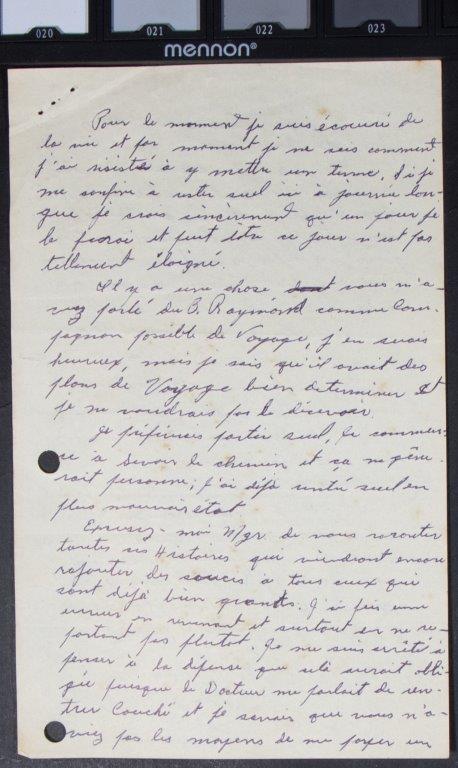 020 021 022 023
mennon®
Pour le moment je suis écoeuré de
la vie et par moment je ne sais comment
j'ai resisté à y mettre un terme, si je
me confine à rester seul ici à journée lon-
gue je crois sincèrement qu'un jour je
le ferai et peut être ce jour n'est pas
tellement éloigné.
Il y a une chose dont vous m'a-
vez parlé du P. Raymond comme Com-
pagnon possible de Voyage, j'en serais
heureux, mais je sais qu'il avait des
plans de Voyage bien determiner et
je ne voudrais pas le décevoir.
Je préfèrerais partir seul, je commen-
ce à savoir le chemin et ca ne gêne-
rait personne, j'ai déjà entré seul en
plus mauvais état
Excusez-moi Mgr de vous raconter
toutes ces Histoires qui viendront encore
rajouter des soucis à tous ceux qui
sont déjà bien grands. J'ai fais une
erreur en revenant et surtout en ne re-
partant pas plutot. Je me suis arrêté à
penser à la dépense que celà aurait obli-
gée puisque le Docteur me parlait de ren-
trer Couché et je savais que vous n'a-
viez pas les moyens de me payer un